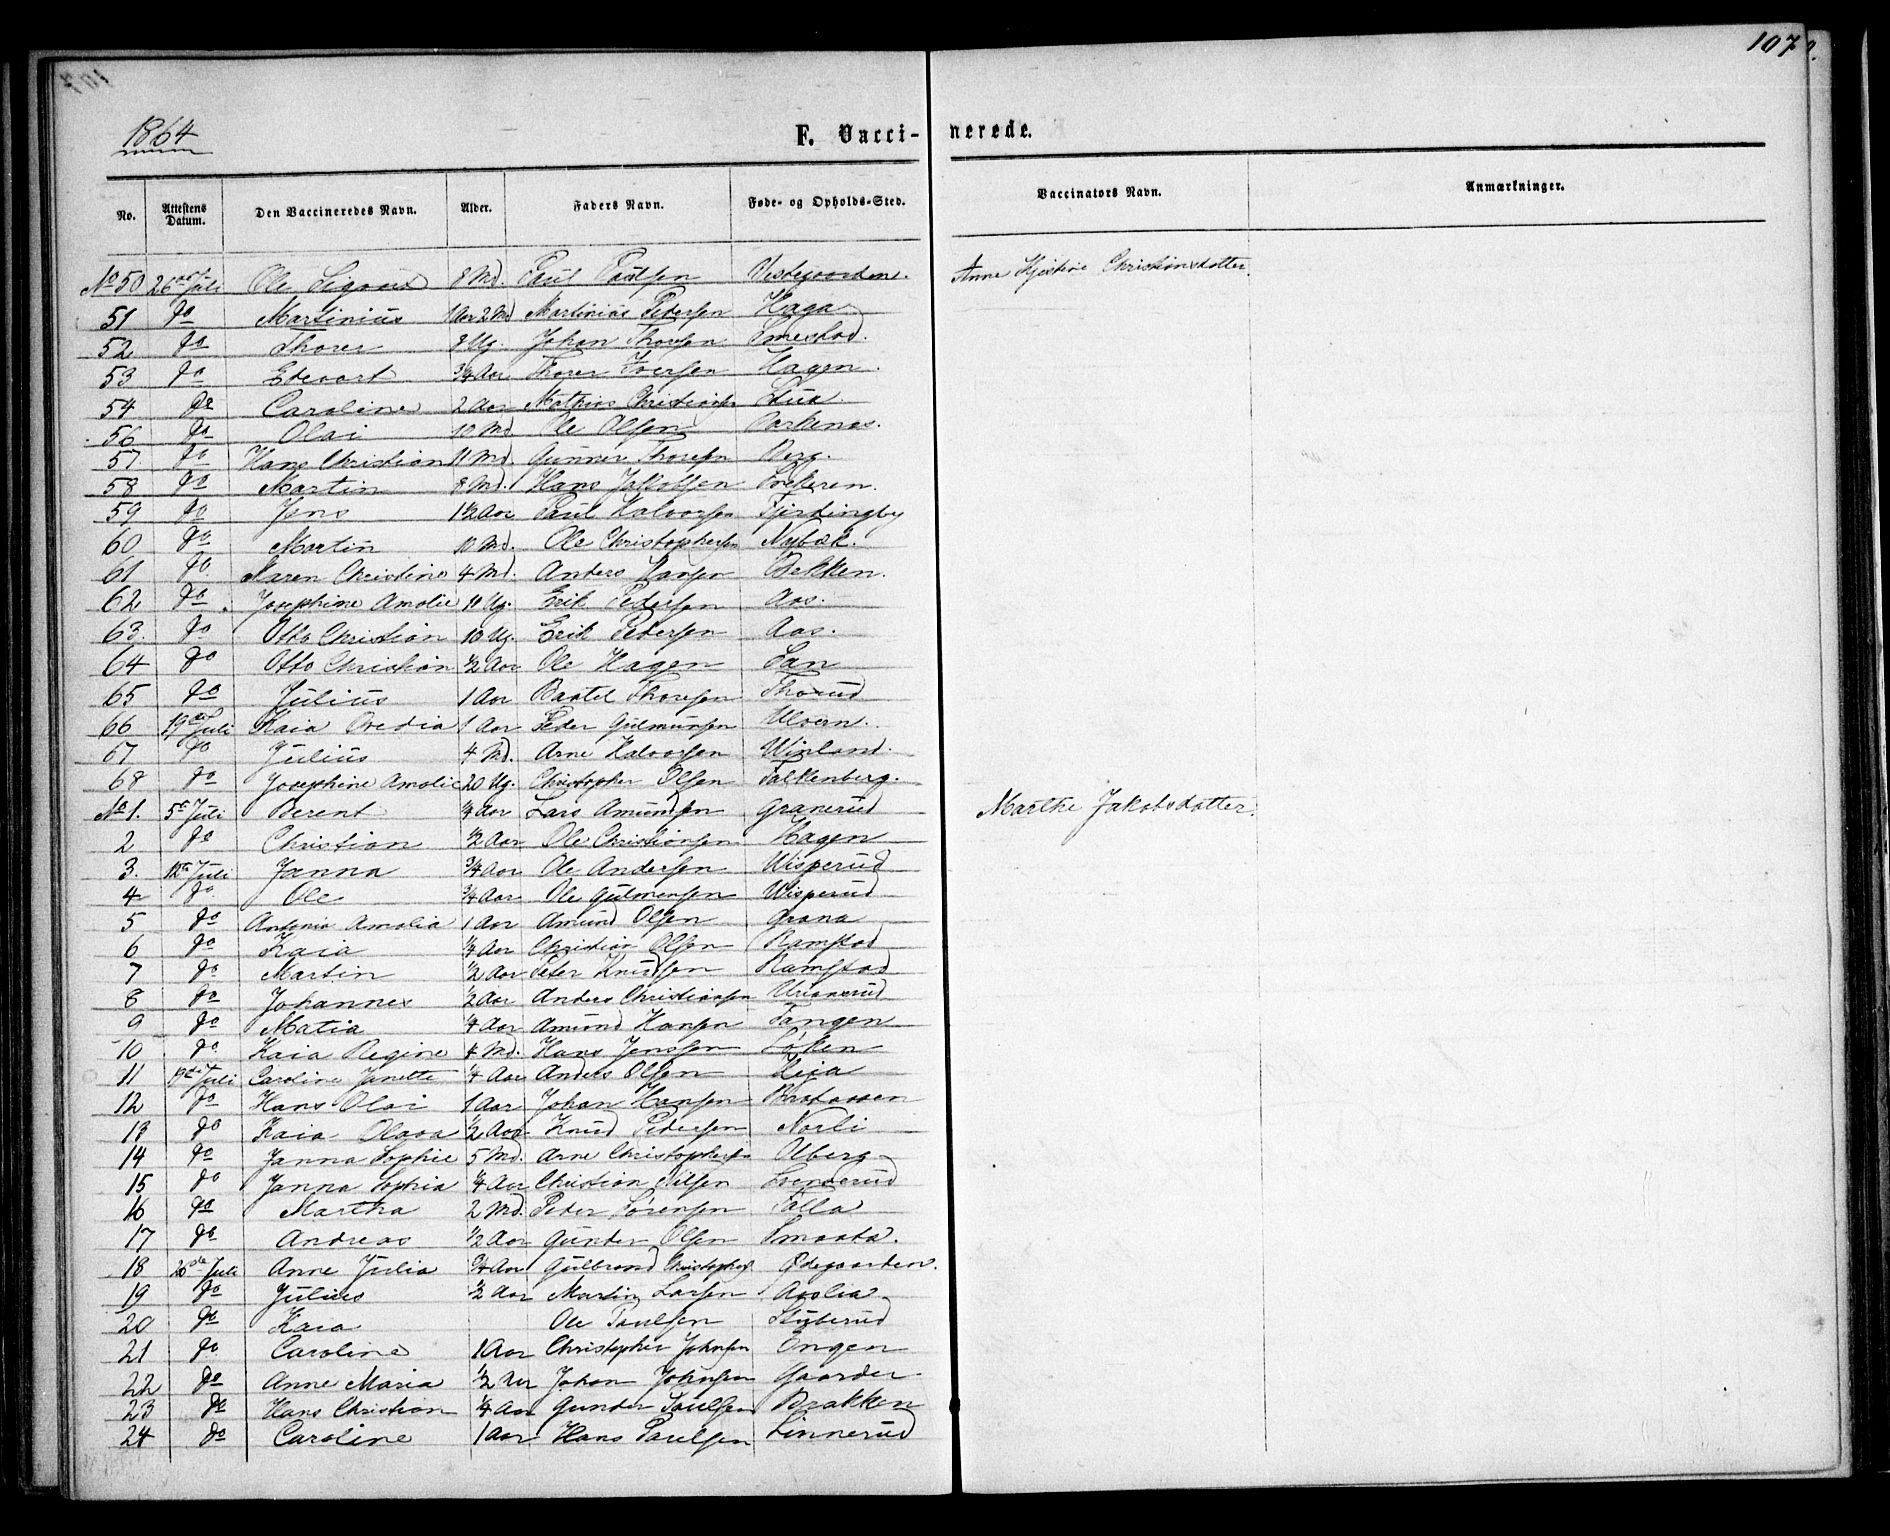 107
1864
F. Vaccinerede.
No. Attestens Datum. Den Vaccineredes Navn. Alder. Faders Navn. Føde- og Opholds-Sted. Vaccinators Navn. Anmærkninger.
No 50 26de Juli Ole Sigvard 8 Md. Paul Paulsen Vestgaarden. Anne Kjerstine Christiansdatter.
51 do Martinius 1 Aar 2 Md Martinius Pedersen Haga
52 do Thorer 8 Ug. Johan Thorsen Smestad.
53 do Edevart 3/4 Aar Thorer Iversen Hagen.
54 do Caroline 2 Aar Mathias Christiansen Stua.
56 do Olai 10 Md Ole Olsen
57 do Hans Christian 11 Md. Gunner Thoresen Berg.
58 do Martin 8 Md. Hans Jakobsen
59 do Jens 1 1/2 Aar Paul Halvorsen Fjerdingby
60 do Martin 10 Md. Ole Christophersen Nybæk.
61 do Karen Christine 4 Md. Anders Hansen Bekken.
62 do Josephine Amalie 10 Ug. Erik Pedersen Aas.
63. do Otto Christian 10 Ug. Erik Pedersen Aas.
64 do Otto Christian 1/2 Aar Ole Hagen
65 do Julius 1 Aar Baatel Thoresen Thorud
66 19de Juli Kaia 1 Aar Peder Gulmunsen Ulvern.
67 do Julius 4 Md. Arne Halvorsen Winland.
68 do Josephine Amalie 20 Ug. Christopher Olsen Falkenberg.
No 1. 5te Juli Berent 1/4 Aar Lars Amundsen Granerud Marthe Jakobsdatter.
2 do Christian 1/2 Aar Ole Christiansen Hagen
3. 12te Juli Janna 3/4 Aar Ole Andersen Wisperud
4 do Ole 3/4 Aar Ole Gulmensen Wisperud
5 do Antonia Amalia 1 Aar Amund Olsen Grana
6 do Kaia 1/4 Aar Christian Olsen Ramstad
7 do Martin 1/2 Aar Peter Knudsen Ramstad
8 do Johannes 1/2 Aar Anders Christiansen Urianerud
9 do Matia 1/4 Aar Amund Hansen Tangen
10 do Kaia Regine 4 Md. Hans Jenssen Løken
11 19de Juli Caroline Janette 1/4 Aar Anders Olsen Heia
12 do Hans Olai 1 Aar Johan Hansen
13 do Kaia Olava 1/2 Aar Knud Pedersen Norli
14 do Janna Sophie 5 Md. Arne Christophersen Uberg
15 do Janna Sophia 1/4 Aar Christian Nilsen Svenserud
16 do Martha 2 Md. Peder Sørensen Palla
17 do Andreas 1/2 Aar Gunder Olsen Smaata.
18 26de Juli Anne Julia 3/4 Aar Gulbrand Christophers Ødegaarden.
19 do Julius 1/2 Aar Martin Larsen Aaslia
20 do Kaia Ole Paulsen Stuberud
21 do Caroline 1 Aar Christopher Johnsen Engen
22 do Anne Maria 1/2 Aar Johan Johnsen Gaarder
23 do Hans Christian 1/4 Aar Gunder Paulsen Brakken
24 do Caroline 1 Aar Hans Paulsen Linnerud